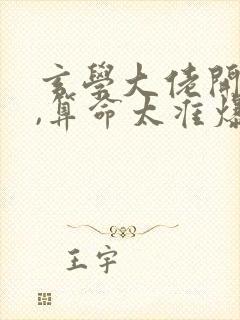 玄學大佬開
,算命太准爆
王宇